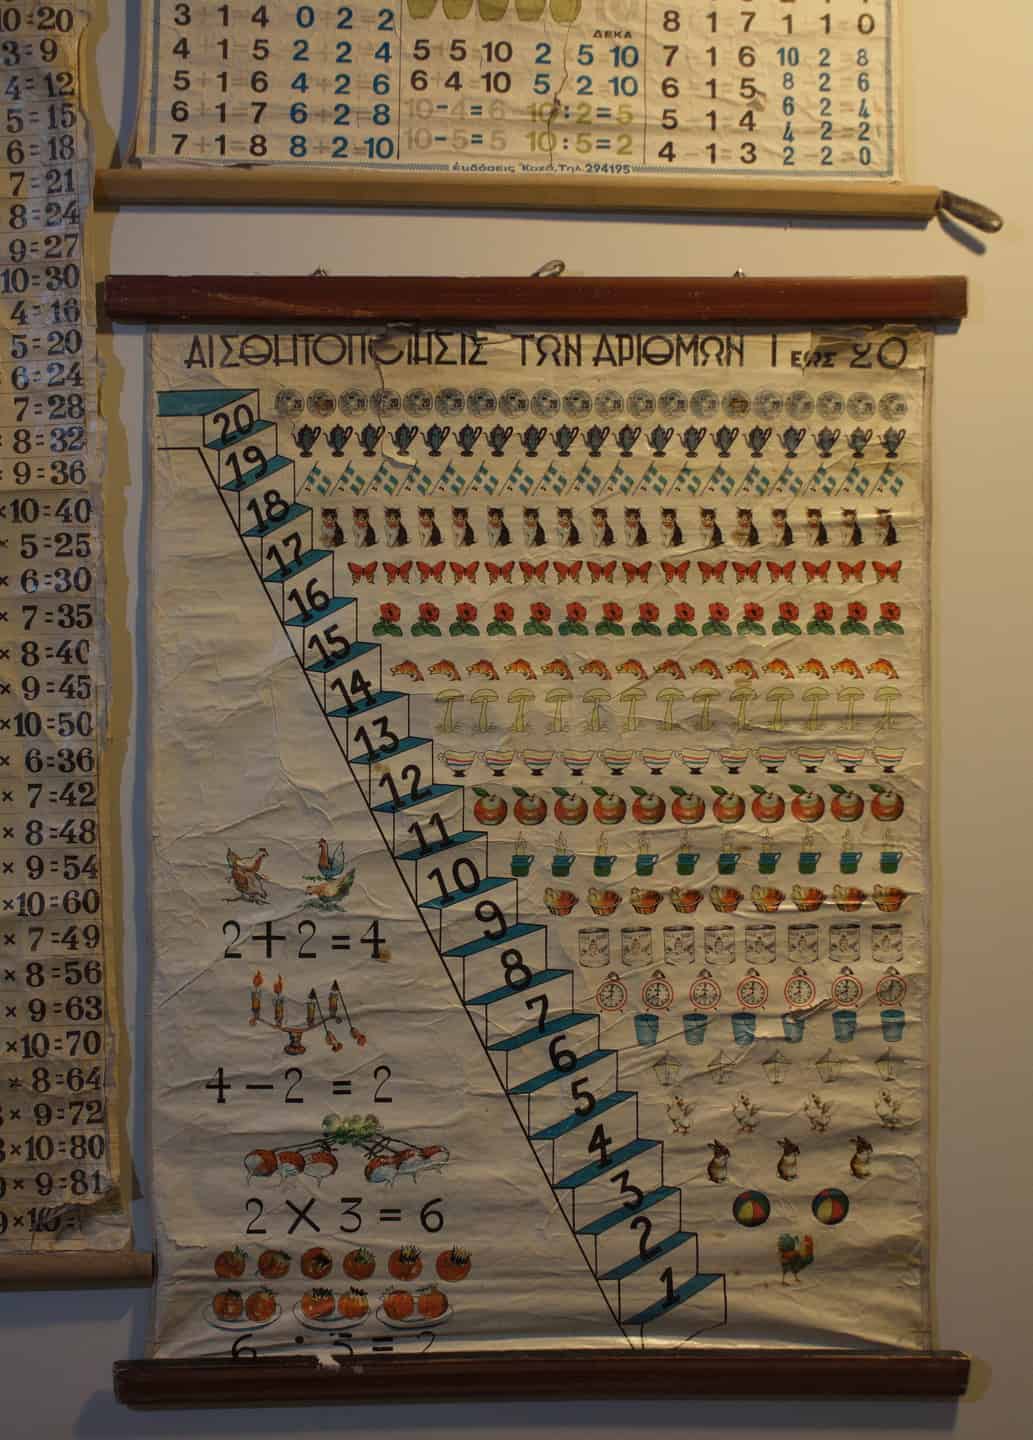 10=20
3=9
4=12
5=15
6=18
7=21
8=24
9=27
10=30
4=16
5=20
6=24
7=28
× 8=32
× 9=36
×10=40
× 5=25
× 6=30
× 7=35
× 8=40
× 9=45
×10=50
× 6=36
× 7=42
× 8=48
× 9=54
×10=60
× 7=49
× 8=56
× 9=63
×10=70
× 8=64
× 9=72
×10=80
× 9=81
3 1 4 0 2 2
4 1 5 2 2 4
5+1=6 4+2=6
6+1=7 6+2=8
7+1=8 8+2=10
ΔΕΚΑ
5 5 10 2 5 10
6 4 10 5 2 10
10-4=6 10:2=5
10-5=5 10:5=2
8 1 7 1 1 0
7 1 6 10 2 8
6 1 5 8 2 6
6 2 4
5 1 4 4 2 2
4-1=3 2-2=0
Ἐκδόσεις Τηλ. 294195
ΑΙΣΘΗΤΟΠΟΙΗΣΙΣ ΤΩΝ ΑΡΙΘΜΩΝ 1 ΕΩΣ 20
20
19
18
17
16
15
14
13
12
11
10
9
8
7
6
5
4
3
2
1
2+2=4
4-2=2
2×3=6
6:3=2